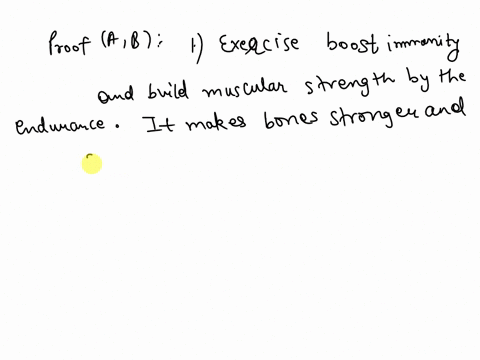 Proof (A,B): 1) Exercise boost immunity
and build muscular strength by the
endurance. It makes bones stronger and